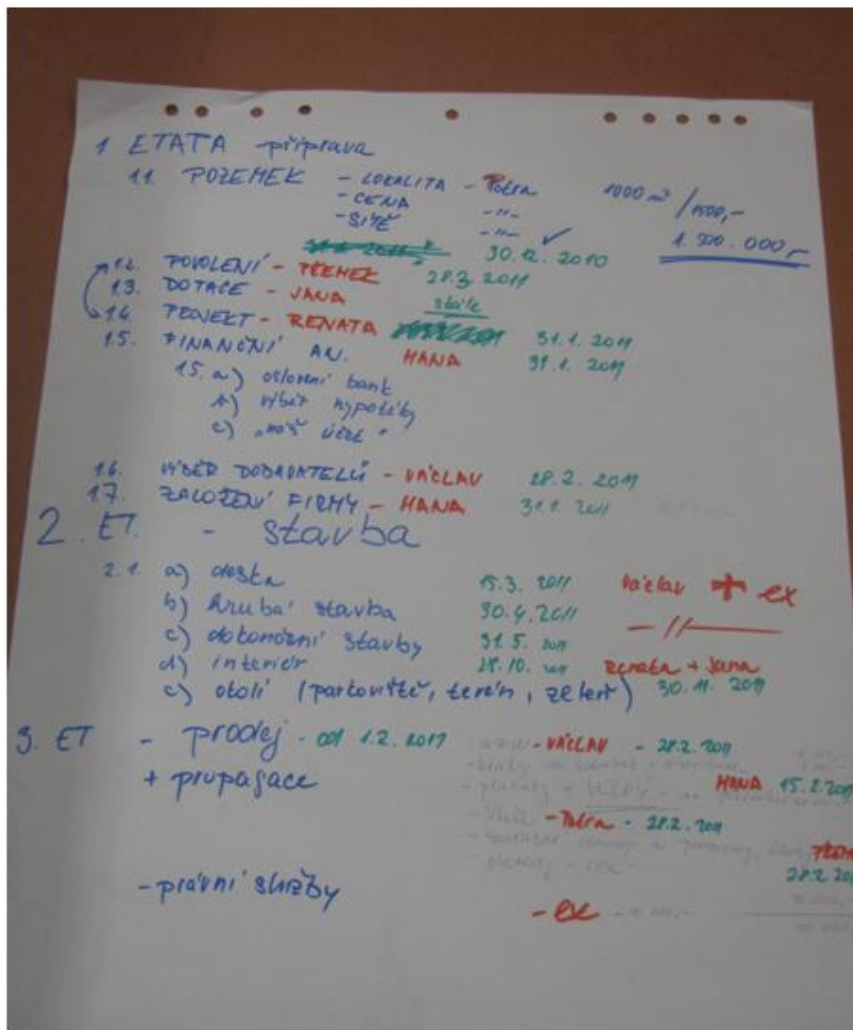 1 ETATA - příprava
1.1. POZEMEK - LOKALITA - Petra 1000 m² / 1500,-
- CENA -"-
- SÍTĚ -"- ✓ 1.500.000,-
30.12.2010
1.2. POVOLENÍ - PŘEMEK 28.2. 2011
1.3. DOTACE - JANA stále
1.4. PROJEKT - RENATA 31.1. 2011
1.5. FINANČNÍ AN. HANA 31.1. 2011
1.5. a) oslovení bank
b) výběr hypotéky
c) „náš účet"
1.6. VÝBĚR DODAVATELŮ - VÁCLAV 28.2. 2011
1.7. ZALOŽENÍ FIRMY - HANA 31.1. 2011
2. ET. - stavba
2.1. a) deska 15.3. 2011 Václav + ex
b) hrubá stavba 30.4. 2011 - // -
c) dokončení stavby 31.5. 2011
d) interiér 28.10. 2011 Renata + Jana
e) okolí (parkoviště, terén, zeleň) 30.11. 2011
3. ET - prodej - od 1.2. 2011 www - VÁCLAV - 28.2. 2011
+ propagace HANA 15.2.2011
- Petra - 28.2. 2011
28.2.201
- právní služby - ex